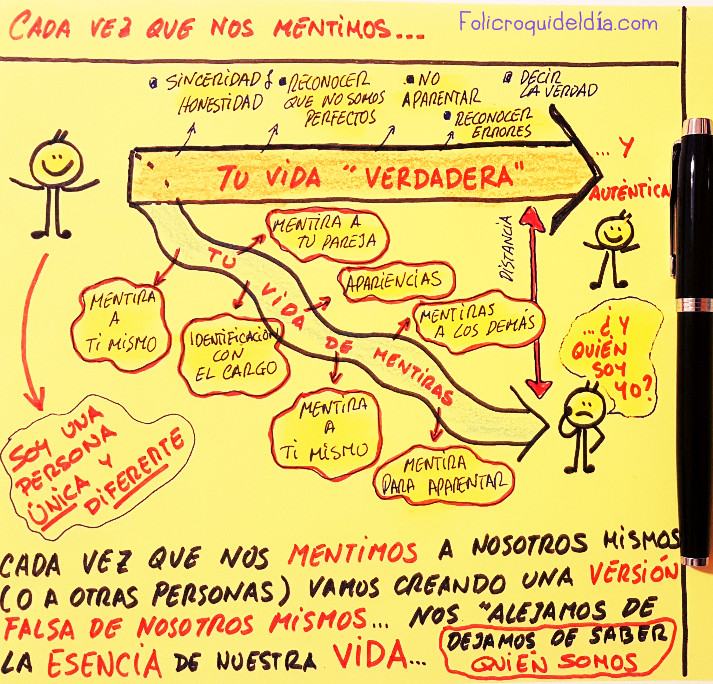 CADA VEZ QUE NOS MENTIMOS...
Folicroquideldía.com
SINCERIDAD Y
HONESTIDAD
RECONOCER
QUE NO SOMOS
PERFECTOS
NO
APARENTAR
RECONOCER
ERRORES
DECIR
LA VERDAD
TU VIDA "VERDADERA"
... Y
AUTÉNTICA
TU VIDA DE MENTIRAS
DISTANCIA
MENTIRA A
TU PAREJA
APARIENCIAS
MENTIRAS
A LOS DEMÁS
MENTIRA
A
TI MISMO
IDENTIFICACIÓN
CON
EL CARGO
MENTIRA
A
TI MISMO
MENTIRA
PARA APARENTAR
...¿Y
QUIÉN
SOY
YO?
SOY UNA
PERSONA
ÚNICA Y
DIFERENTE
CADA VEZ QUE NOS MENTIMOS A NOSOTROS MISMOS
(O A OTRAS PERSONAS) VAMOS CREANDO UNA VERSIÓN
FALSA DE NOSOTROS MISMOS... NOS "ALEJAMOS DE
LA ESENCIA DE NUESTRA VIDA...
DEJAMOS DE SABER
QUIÉN SOMOS